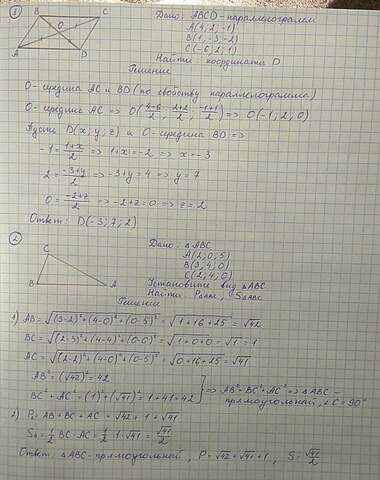 1
B C
O
A D
Дано: ABCD - параллелограмм
A(4, 2, -1)
B(1, -3, -2)
C(-6, 2, 1)
Найти координаты D
Решение
O - середина AC и BD (по свойству параллелограмма)
O - середина AC => O((4-6)/2, (2+2)/2, (-1+1)/2) => O(-1; 2; 0)
Пусть D(x, y, z) и O - середина BD =>
-1 = (1+x)/2 => 1+x = -2 => x = -3
2 = (-3+y)/2 => -3+y = 4 => y = 7
0 = (-2+z)/2 => -2+z = 0 => z = 2
Ответ: D(-3; 7; 2)
2
C
B A
Дано: △ABC
A(2, 0, 5)
B(3, 4, 0)
C(2, 4, 0)
Установите вид △ABC
Найти P△ABC, S△ABC
Решение
1) AB = √((3-2)²+(4-0)²+(0-5)²) = √(1+16+25) = √42
BC = √((2-3)²+(4-4)²+(0-0)²) = √(1+0+0) = √1 = 1
AC = √((2-2)²+(4-0)²+(0-5)²) = √(0+16+25) = √41
AB² = (√42)² = 42
BC² + AC² = (1)² + (√41)² = 1+41 = 42
=> AB² = BC² + AC² => △ABC -
прямоугольный, ∠C = 90°
2) P△ = AB + BC + AC = √42 + 1 + √41
S△ = 1/2 BC · AC = 1/2 · 1 · √41 = √41/2
Ответ: △ABC - прямоугольный, P = √42 + √41 + 1, S = √41/2